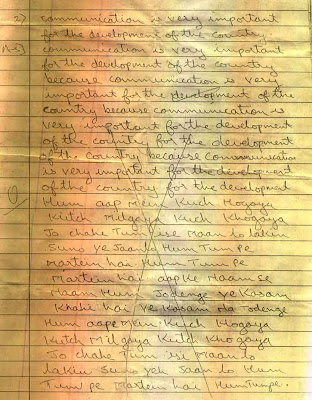 2) communication is very important
for the development of the country.
A-5) communication is very important
for the development of the country
because communication is very
important for the development of the
country because communication is
very important for the development
of the country for the development
of the country because communication
is very important for the development
of the country for the development
Hum aap Mein Kuch Hogaya
Kutch Milgaya Kuch Khogaya
Jo chahe Tum ise Maan lo lakin
Suno ye Jaanlo Hum Tum pe
Martein hai Hum Tum pe
Martein hai aap ke Naam se
Naam Hum Jodenge ye Kasam
Khahi hai ye Kasam Na Todenge
Hum aape Mein Kuch Hogaya
Kutch Milgaya Kutch Khogaya
Jo chahe Tum ise Maan lo
lakin Suno yeh Jaan lo Hum
Tum pe Martein hai Hum Tumpe.
0